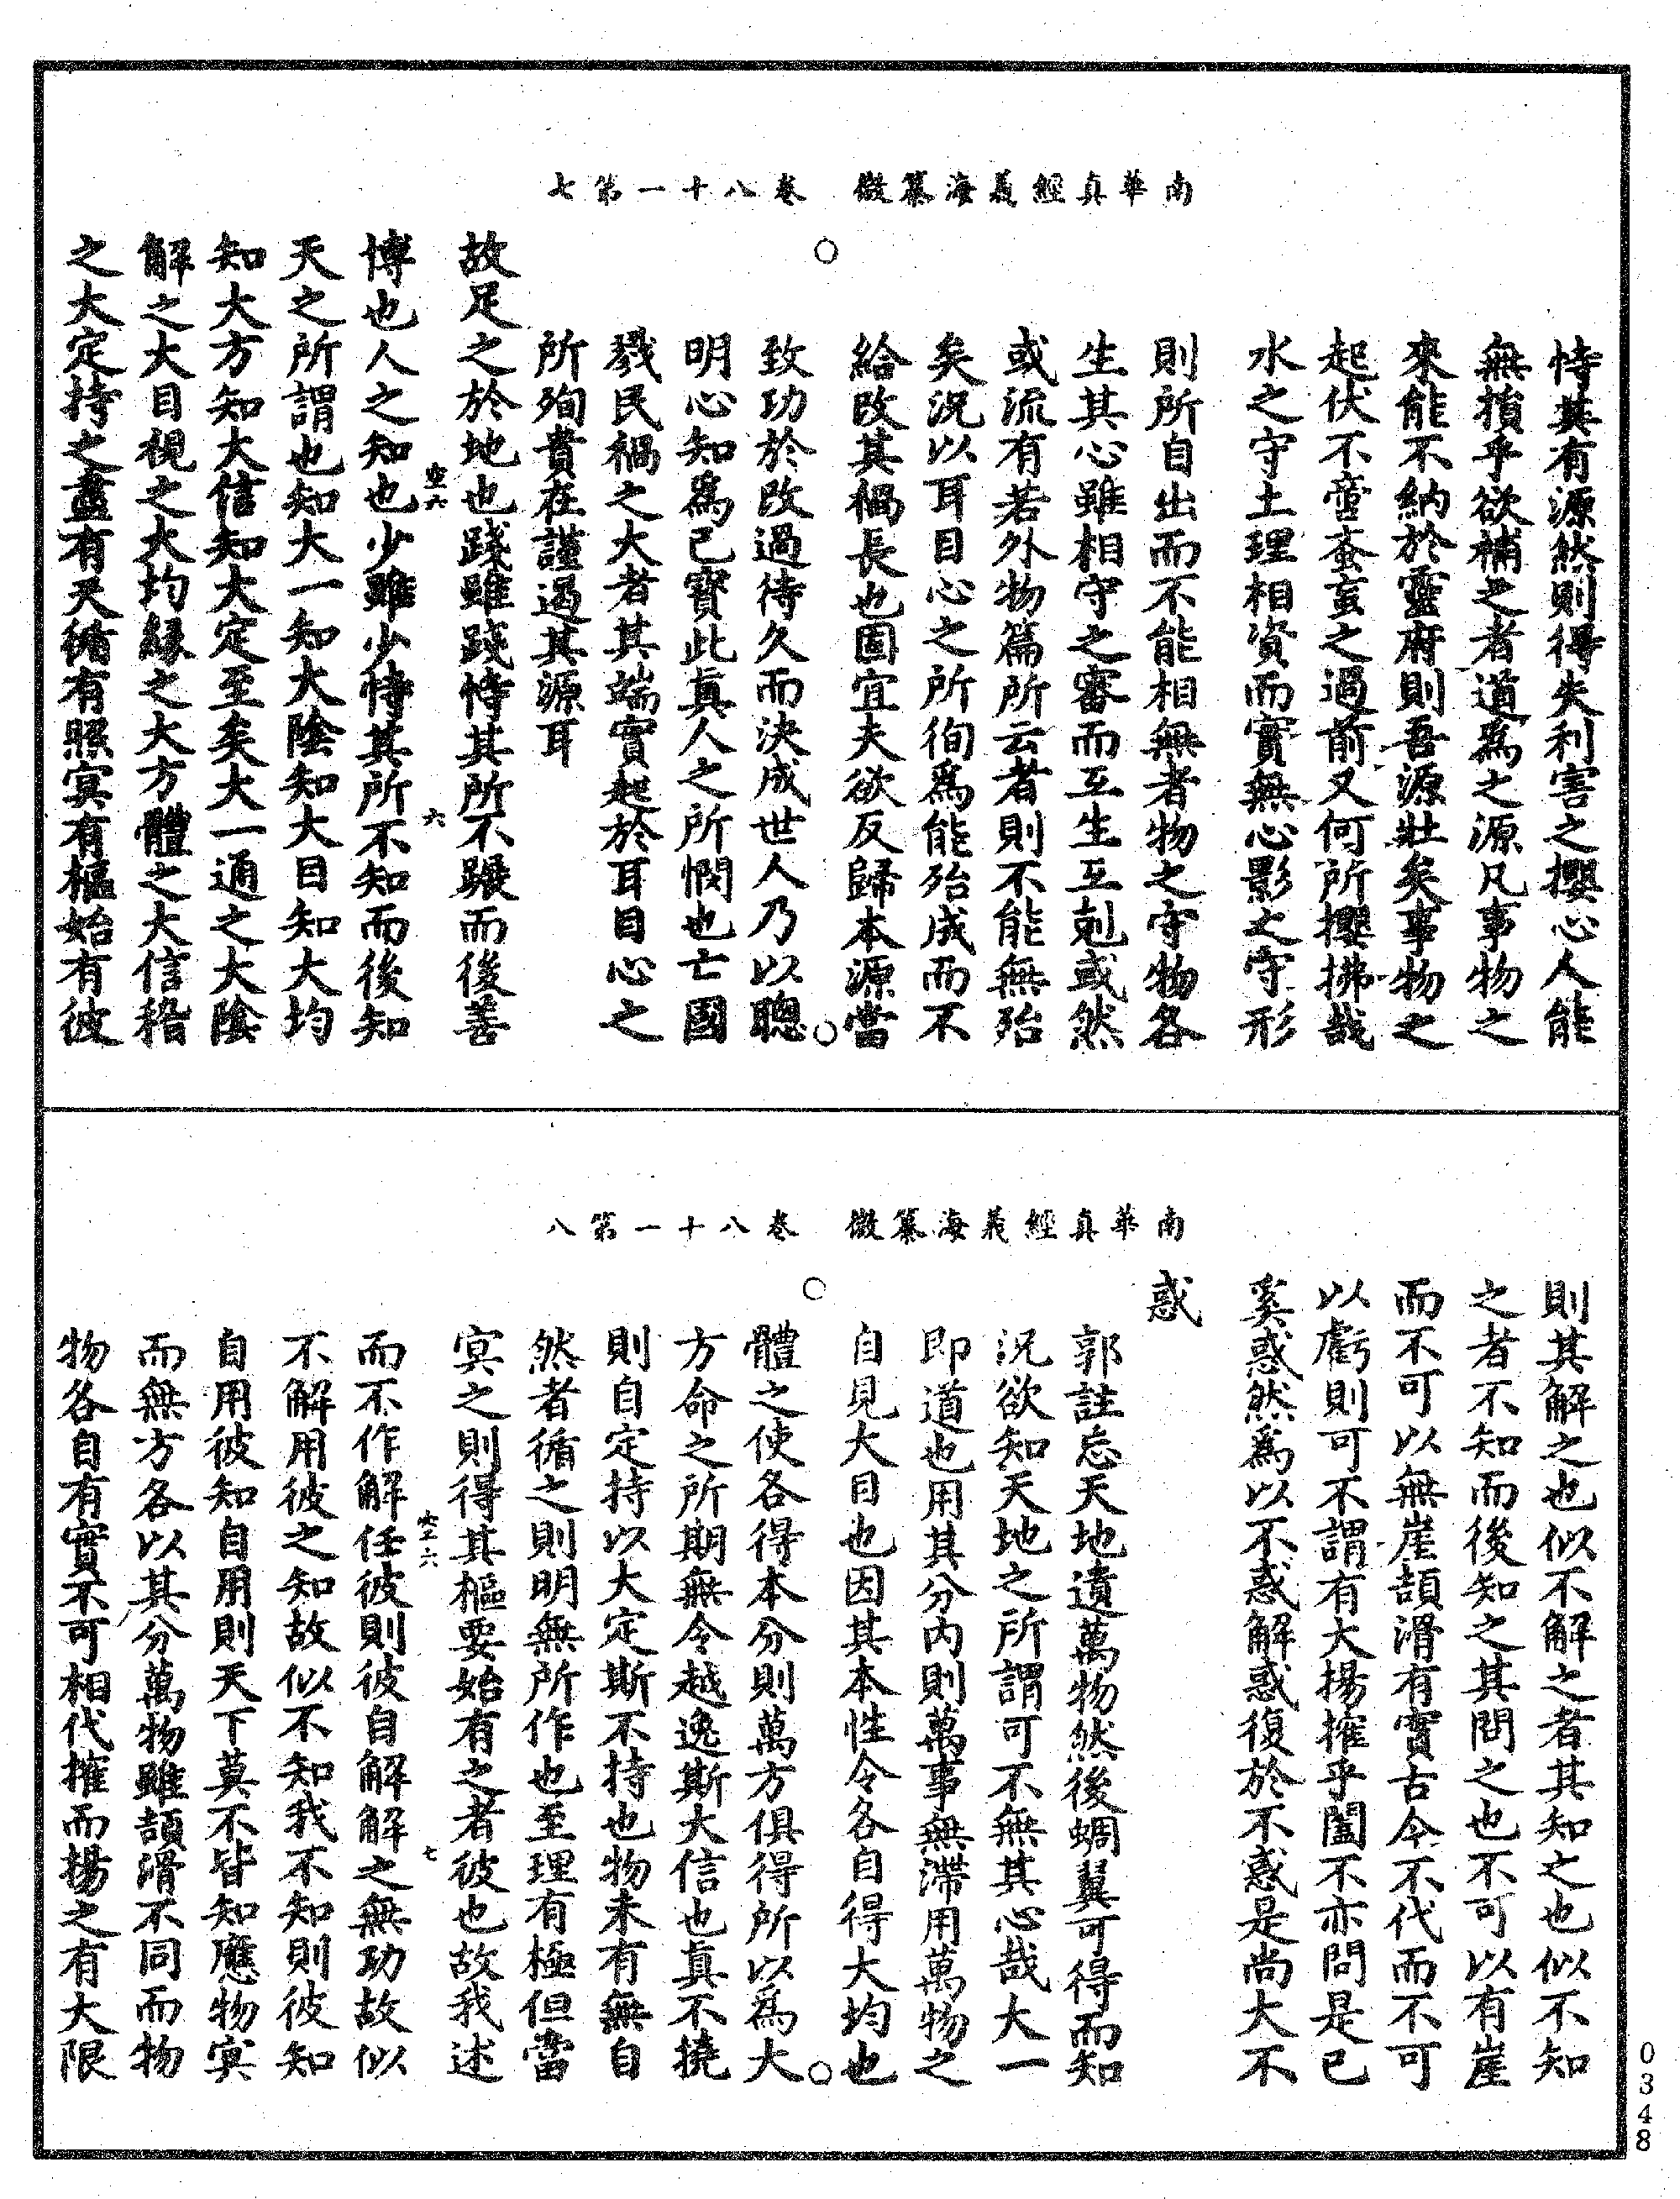 南華真經義海纂微　卷八十一第七
恃其有源然則得失利害之攖心人能
無損乎欲補之者道爲之源凡事物之
來能不納於靈府則吾源壯矣事物之
起伏不啻蚉䖟之過前又何所攖拂哉
水之守土理相資而實無心影之守形
則所自出而不能相無者物之守物各
生其心雖相守之審而互生互剋或然
或流有若外物篇所云者則不能無殆
矣況以耳目心之所徇爲能殆成而不
給改其禍長也固宜夫欲反歸本源當
致功於改過待久而決成世人乃以聰
明心知爲己寶此真人之所憫也亡國
戮民禍之大者其端實起於耳目心之
所殉貴在謹遏其源耳
故足之於地也踐雖踐恃其所不蹍而後善
博也人之知也少雖少恃其所不知而後知
天之所謂也知大一知大陰知大目知大均
知大方知大信知大定至矣大一通之大陰
解之大目視之大均緣之大方體之大信稽
之大定持之盡有天循有照冥有樞始有彼
六
南華真經義海纂微　卷八十一第八
則其解之也似不解之者其知之也似不知
之者不知而後知之其問之也不可以有崖
而不可以無崖頡滑有實古今不代而不可
以虧則可不謂有大揚搉乎闔不亦問是已
奚惑然爲以不惑解惑復於不惑是尚大不
惑
郭註忘天地遺萬物然後蜩翼可得而知
況欲知天地之所謂可不無其心哉大一
即道也用其分內則萬事無滯用萬物之
自見大目也因其本性令各自得大均也
體之使各得本分則萬方俱得所以爲大
方命之所期無令越逸斯大信也真不撓
則自定持以大定斯不持也物未有無自
然者循之則明無所作也至理有極但當
冥之則得其樞要始有之者彼也故我述
而不作解任彼則彼自解解之無功故似
不解用彼之知故似不知我不知則彼知
自用彼知自用則天下莫不皆知應物冥
而無方各以其分萬物雖頡滑不同而物
物各自有實不可相代搉而揚之有大限
七
0348